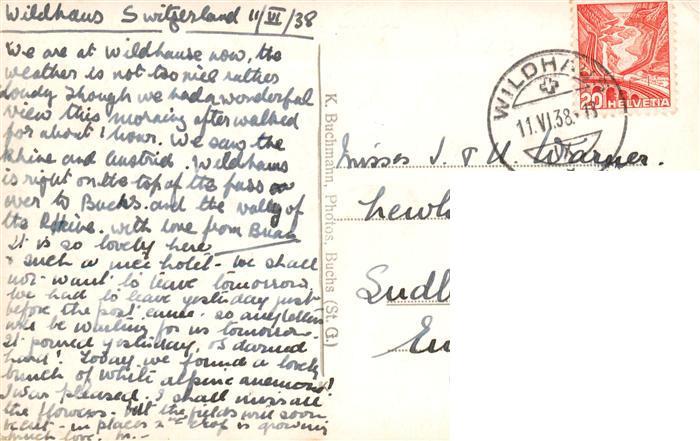 Wildhaus Switzerland 11/VI/38
We are at Wildhause now, the
weather is not too nice rather
cloudy though we had a wonderful
view this morning after walked
for about 1 hour. We saw the
Rhine and Austria. Wildhaus
is right on the top of the pass
over to Buchs. and the valley of
the Rhine. with love from Brian
It is so lovely here
& such a nice hotel - we shall
not want to leave tomorrow
We had to leave yesterday just
before the post came - so any letters
will be waiting for us tomorrow.
It poured yesterday, & darned
hard! Today we found a lovely
bunch of white alpine anemone!
I was pleased. I shall miss all
the flowers - but the fields will soon
be cut - in places 2nd crop is growing
much love. M.-
K. Buchmann, Photos, Buchs (St. G.)
20 HELVETIA
WILDHAU
11.VI.38.
Misses J. & U. Warner.
Lewh
Sudl
En